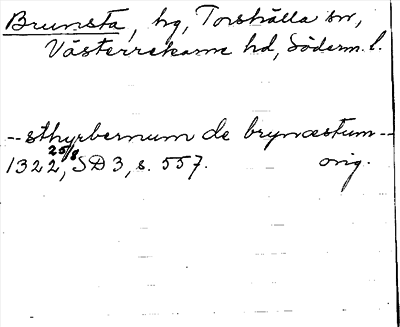 Brunsta, hg, Torshälla sn,
Västerrekarne hd, Söderm. l.
-- sthyrbernum de brynæstum --
1322 25/8, SD 3, s. 557. orig.